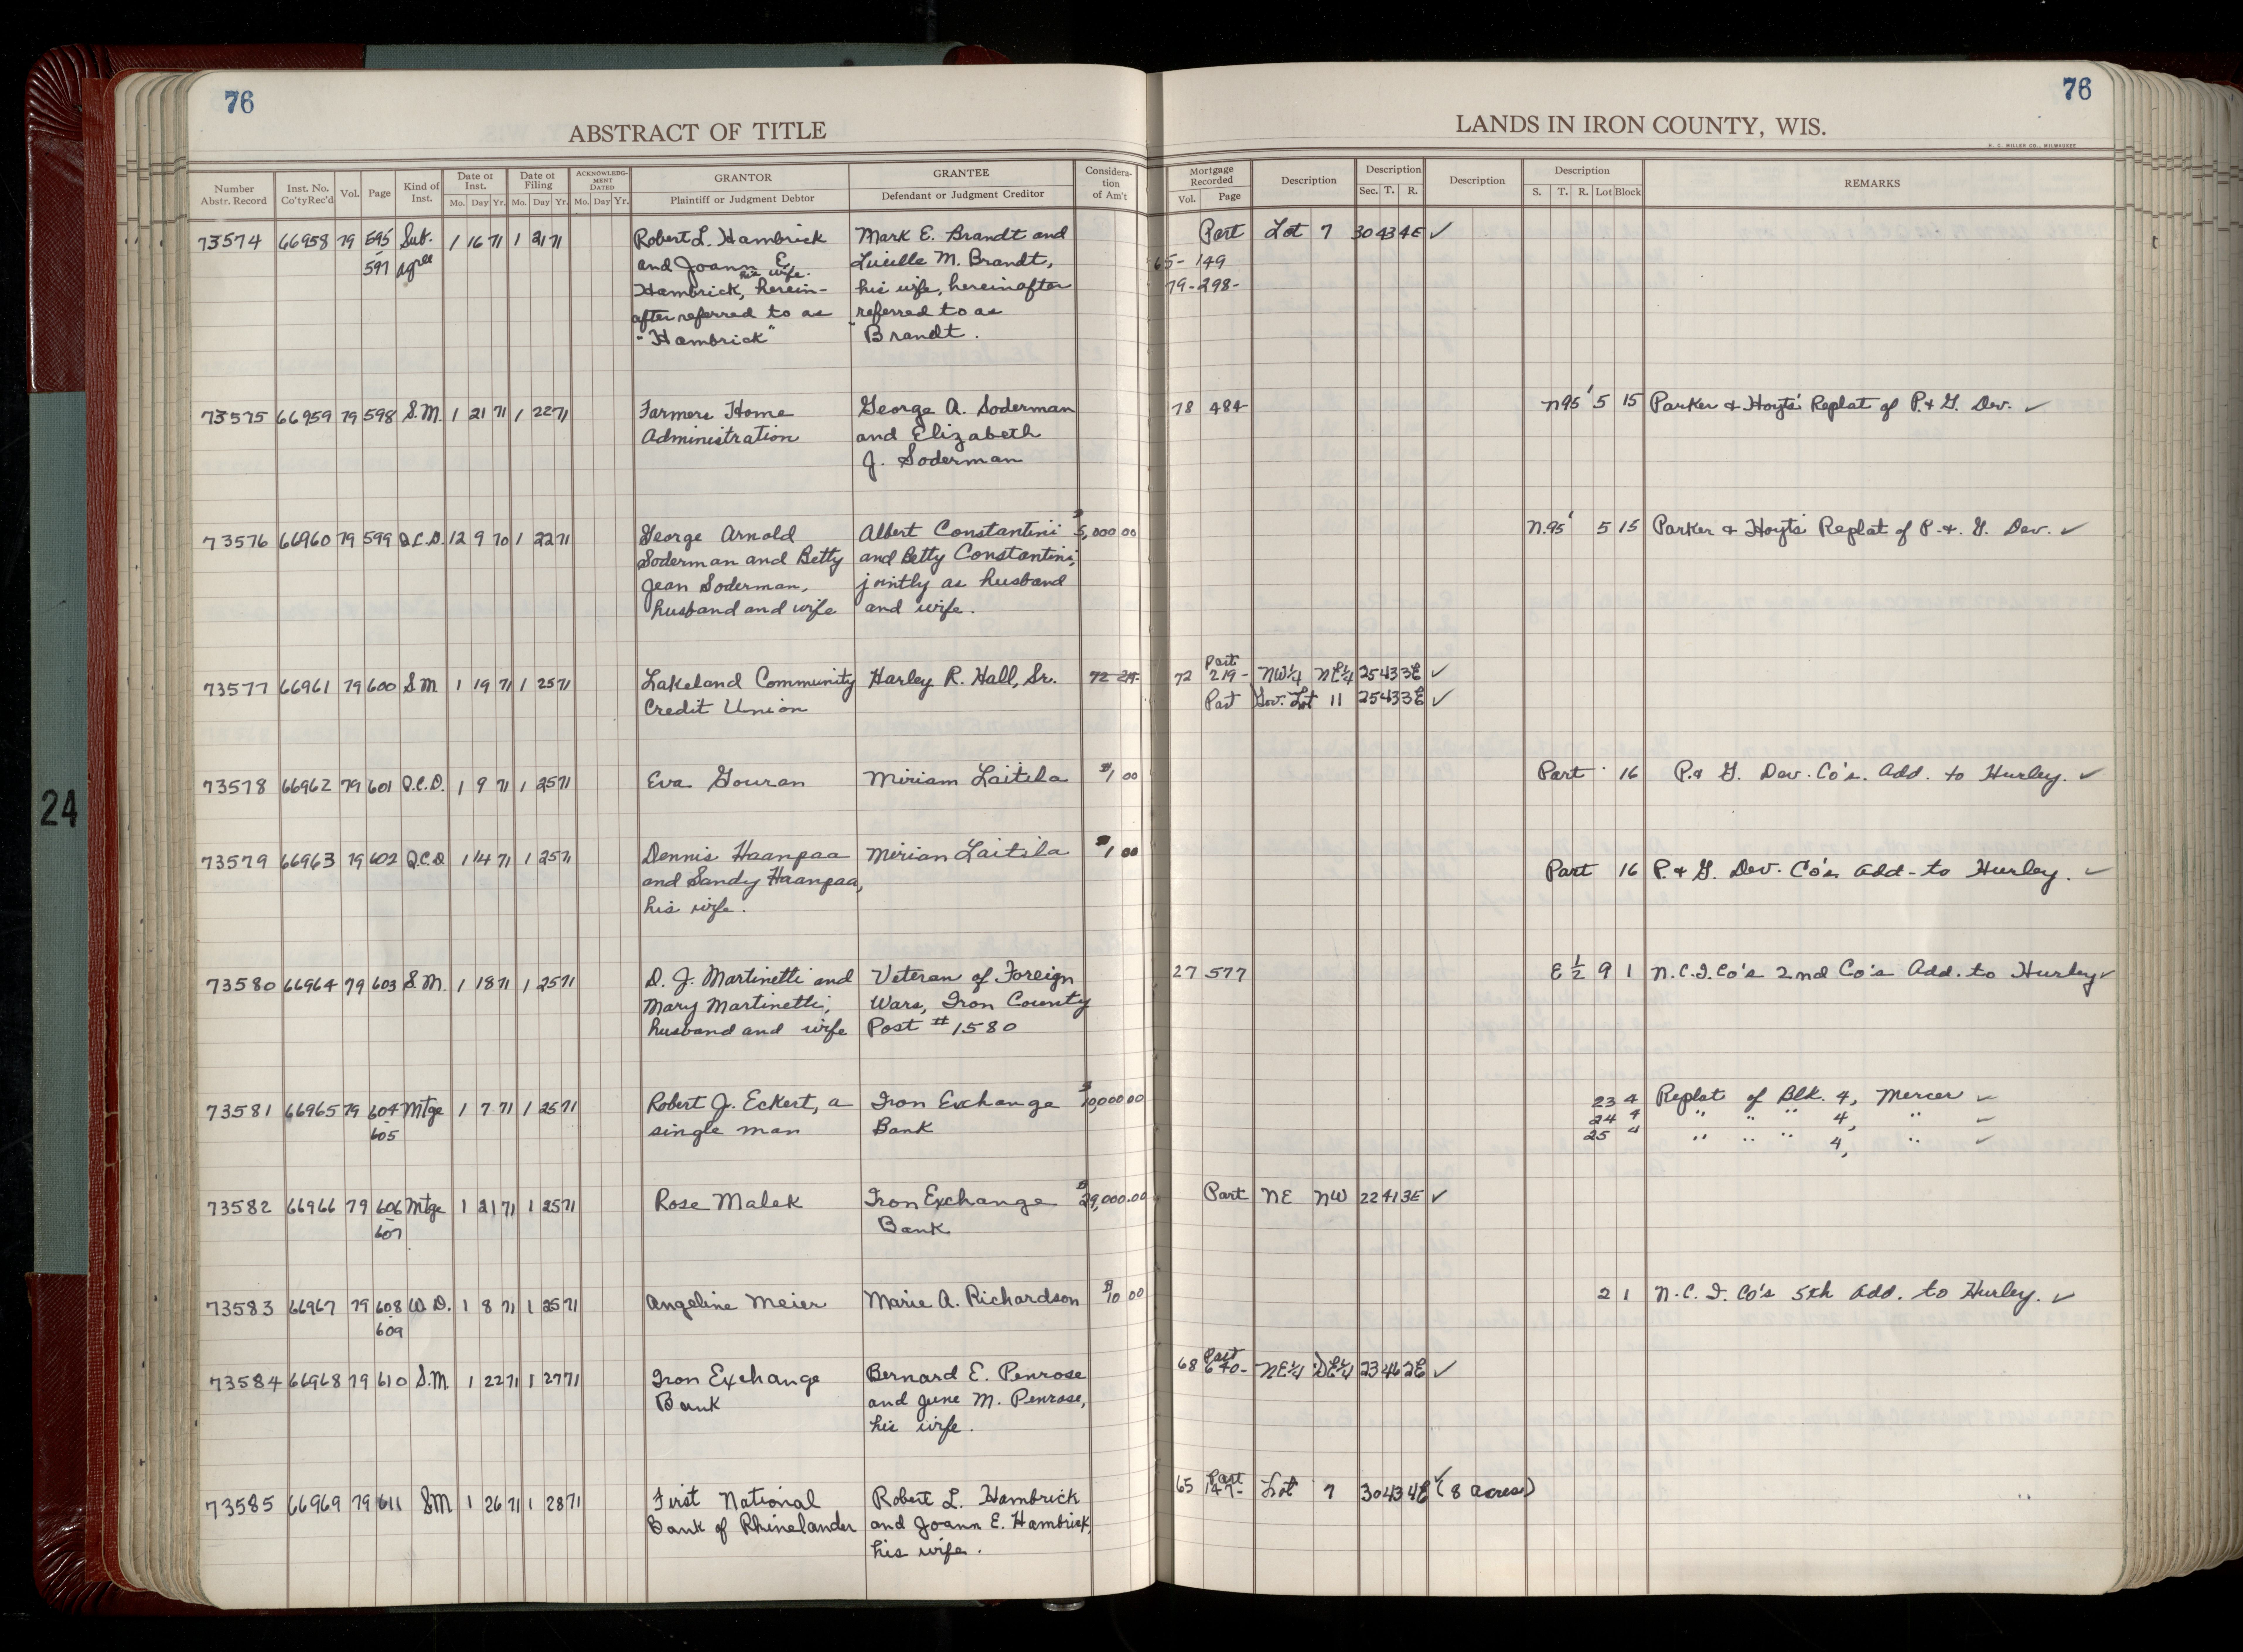 76
76
ABSTRACT OF TITLE
LANDS IN IRON COUNTY, WIS.
H. C. MILLER CO., MILWAUKEE
Number Abstr. Record | Inst. No. Co'ty Rec'd | Vol. | Page | Kind of Inst. | Date of Inst. Mo. Day Yr. | Date of Filing Mo. Day Yr. | ACKNOWLEDGMENT DATED Mo. Day Yr. | GRANTOR Plaintiff or Judgment Debtor | GRANTEE Defendant or Judgment Creditor | Consideration of Am't | Mortgage Recorded Vol. Page | Description | Description Sec. T. R. | Description | Description S. T. R. Lot Block | REMARKS
73574 66958 79 595 Sub. 1 16 71 1 21 71 Robert L. Hambrick Mark E. Brandt and Part Lot 7 30 43 4E ✓
597 agree and Joann E. Lucille M. Brandt, 65- 149
his wife.
Hambrick, herein- his wife, hereinafter 79-298-
after referred to as referred to as
"Hambrick" "Brandt.
73575 66959 79 598 S.M. 1 21 71 1 22 71 Farmers Home George A. Soderman 78 484 N95' 5 15 Parker & Hoyts' Replat of P. & G. Dev. ✓
Administration and Elizabeth
J. Soderman
73576 66960 79 599 Q.C.D. 12 9 70 1 22 71 George Arnold Albert Constantini $5,000 00 N.95' 5 15 Parker & Hoyts' Replat of P. & G. Dev. ✓
Soderman and Betty and Betty Constantini,
Jean Soderman, jointly as husband
husband and wife and wife.
73577 66961 79 600 S.M 1 19 71 1 25 71 Lakeland Community Harley R. Hall, Sr. 72 219 72 Part 219- NW¼ NE¼ 25 43 3E ✓
Credit Union Part Gov. Lot 11 25 43 3E ✓
73578 66962 79 601 Q.C.D. 1 9 71 1 25 71 Eva Gouran Miriam Laitila $1 00 Part 16 P. & G. Dev. Co's. Add. to Hurley. ✓
73579 66963 79 602 Q.C.D. 1 14 71 1 25 71 Dennis Haanpaa Mirian Laitila $1 00 Part 16 P. & G. Dev. Co's Add. to Hurley. ✓
and Sandy Haanpaa,
his wife.
73580 66964 79 603 S.M. 1 18 71 1 25 71 D. J. Martinetti and Veteran of Foreign 27 577 E ½ 9 1 N.C.I. Co's 2nd Co's Add. to Hurley ✓
Mary Martinetti, Wars, Iron County
husband and wife Post #1580
73581 66965 79 604 Mtge 1 7 71 1 25 71 Robert J. Eckert, a Iron Exchange $10,000 00 23 4 Replat of Blk. 4, Mercer ✓
605 single man Bank 24 4 " " " 4, " ✓
25 4 " " " 4, " ✓
73582 66966 79 606 Mtge 1 21 71 1 25 71 Rose Malek Iron Exchange $29,000.00 Part NE NW 22 41 3E ✓
607 Bank
73583 66967 79 608 W.D. 1 8 71 1 25 71 Angeline Meier Marie A. Richardson $10 00 2 1 N.C.I. Co's 5th Add. to Hurley. ✓
609
73584 66968 79 610 S.M 1 22 71 1 27 71 Iron Exchange Bernard E. Penrose 68 Part 640- NE¼ SE¼ 23 46 2E ✓
Bank and June M. Penrose,
his wife.
73585 66969 79 611 SM 1 26 71 1 28 71 First National Robert L. Hambrick 65 Part 149- Lot 7 30 43 4E ✓ (8 acres)
Bank of Rhinelander and Joann E. Hambrick,
his wife.
24